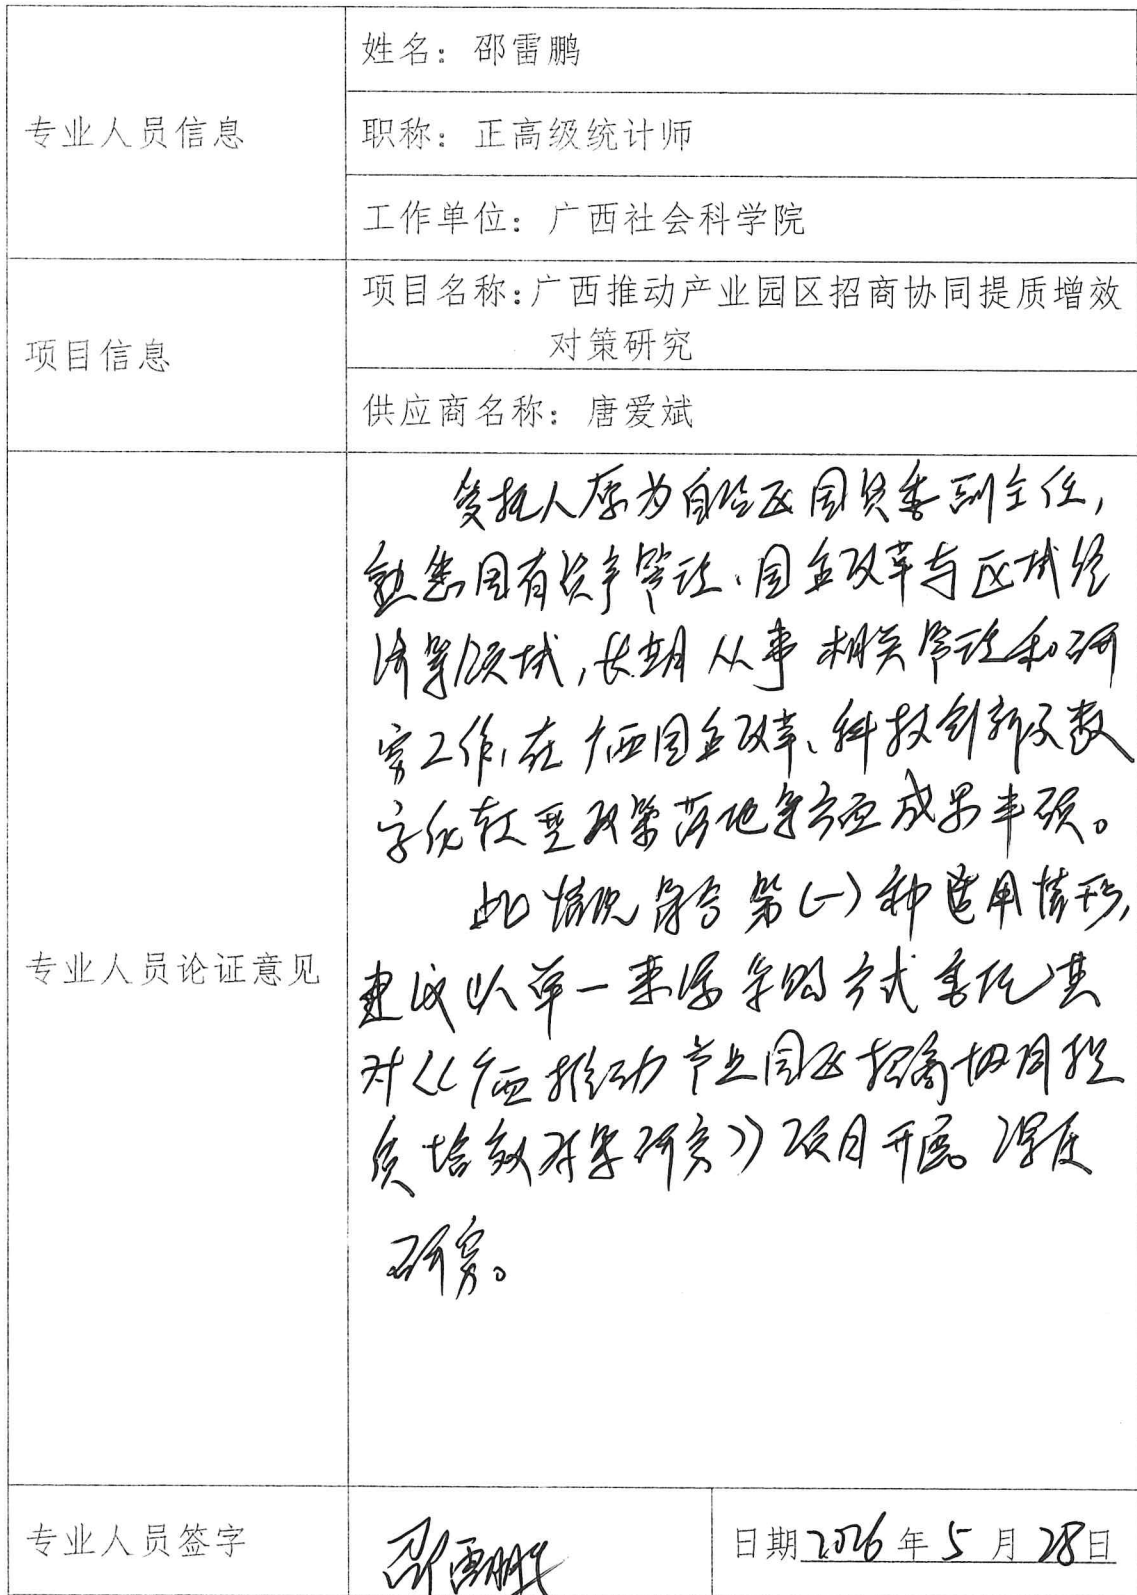 姓名：邵雷鹏
专业人员信息
职称：正高级统计师
工作单位：广西社会科学院
项目名称：广西推动产业园区招商协同提质增效
对策研究
项目信息
供应商名称：唐爱斌
受托人原为自治区国资委副主任，
熟悉国有资产管理、国企改革与区域经
济等领域，长期从事相关管理和研
究工作，在广西国企改革、科技创新及数
字化转型政策落地等方面成果丰硕。
此情况符合第(一)种适用情形，
专业人员论证意见
建议以单一来源采购方式委托其
对《广西推动产业园区招商协同提
质增效对策研究》项目开展深度
研究。
专业人员签字
邵雷鹏
日期2026年5月28日